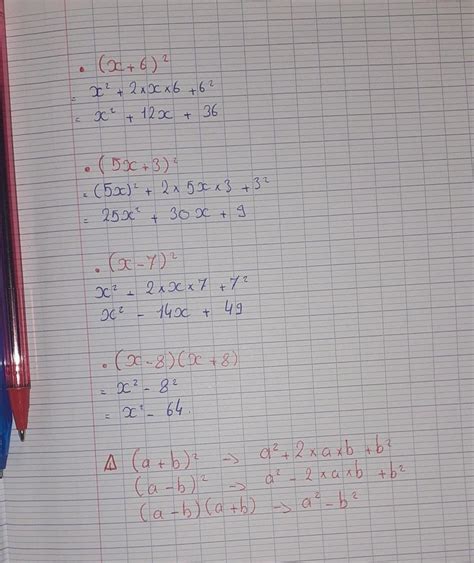 • (x+6)²
= x² + 2×x×6 + 6²
= x² + 12x + 36
• (5x+3)²
= (5x)² + 2×5x×3 + 3²
= 25x² + 30x + 9
• (x-7)²
x² - 2×x×7 + 7²
x² - 14x + 49
• (x-8)(x+8)
= x² - 8²
= x² - 64.
⚠ (a+b)² → a² + 2×a×b + b²
(a-b)² → a² - 2×a×b + b²
(a-b)(a+b) → a² - b²